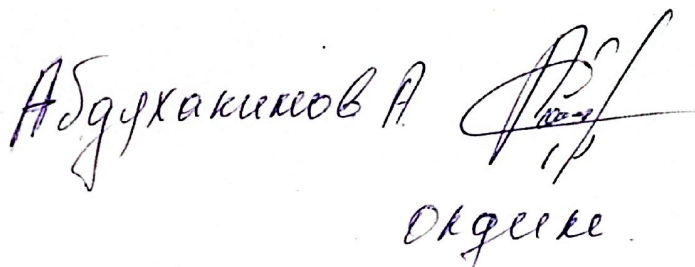 Абдухакимов А.
окдим.